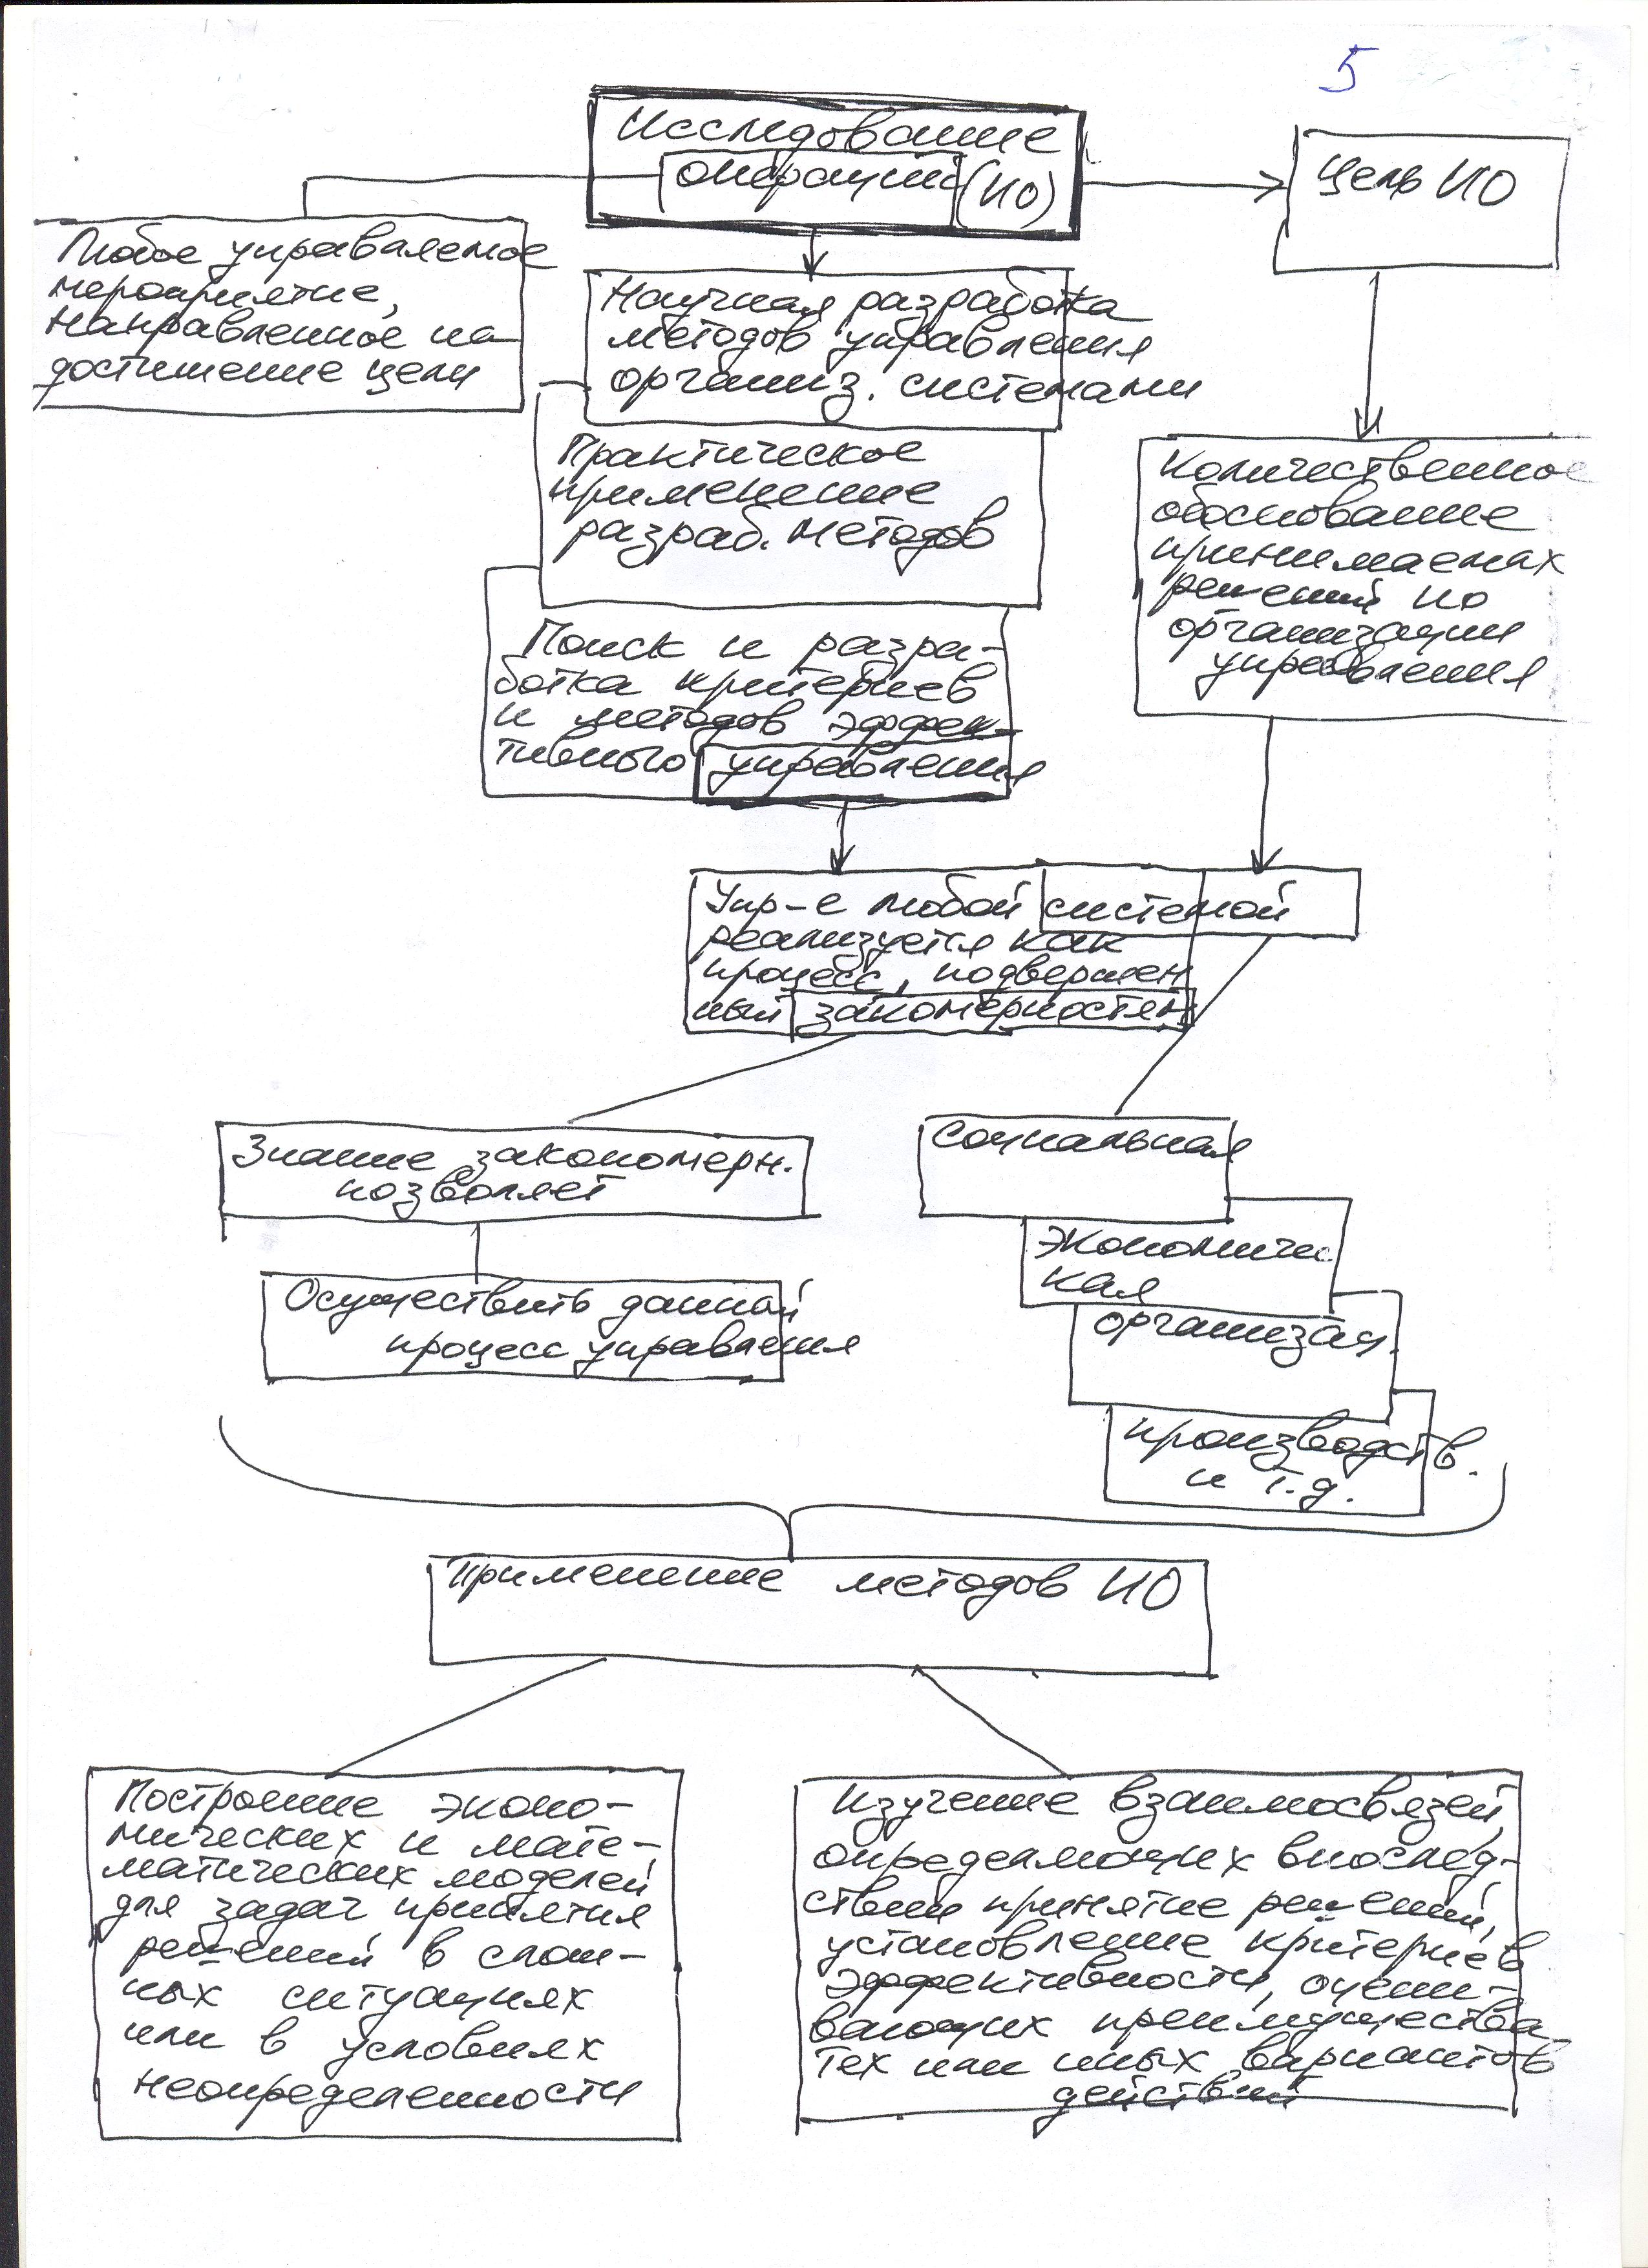 5
Исследование
операций (ИО)
Цель ИО
Любое управляемое
мероприятие,
направленное на
достижение цели
Научная разработка
методов управления
организ. системами
Практическое
применение
разраб. методов
Поиск и разра-
ботка критериев
и методов эффек-
тивного управления
Количественное
обоснование
принимаемых
решений по
организации
управления
Упр-е любой системой
реализуется как
процесс, подвержен
ный закономерностям
Знание закономерн.
позволяет
Осуществить данный
процесс управления
Социальная
Экономичес
кая
организац.
производств.
и т.д.
Применение методов ИО
Построение эконо-
мических и мате-
матических моделей
для задач принятия
решений в слож-
ных ситуациях
или в условиях
неопределенности
Изучение взаимосвязей,
определяющих впослед-
ствии принятие решений,
установление критериев
эффективности, оцени-
вающих преимущества
тех или иных вариантов
действий